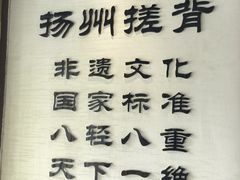 扬州搓背
非遗文化
国家标准
八轻八重
天下一绝